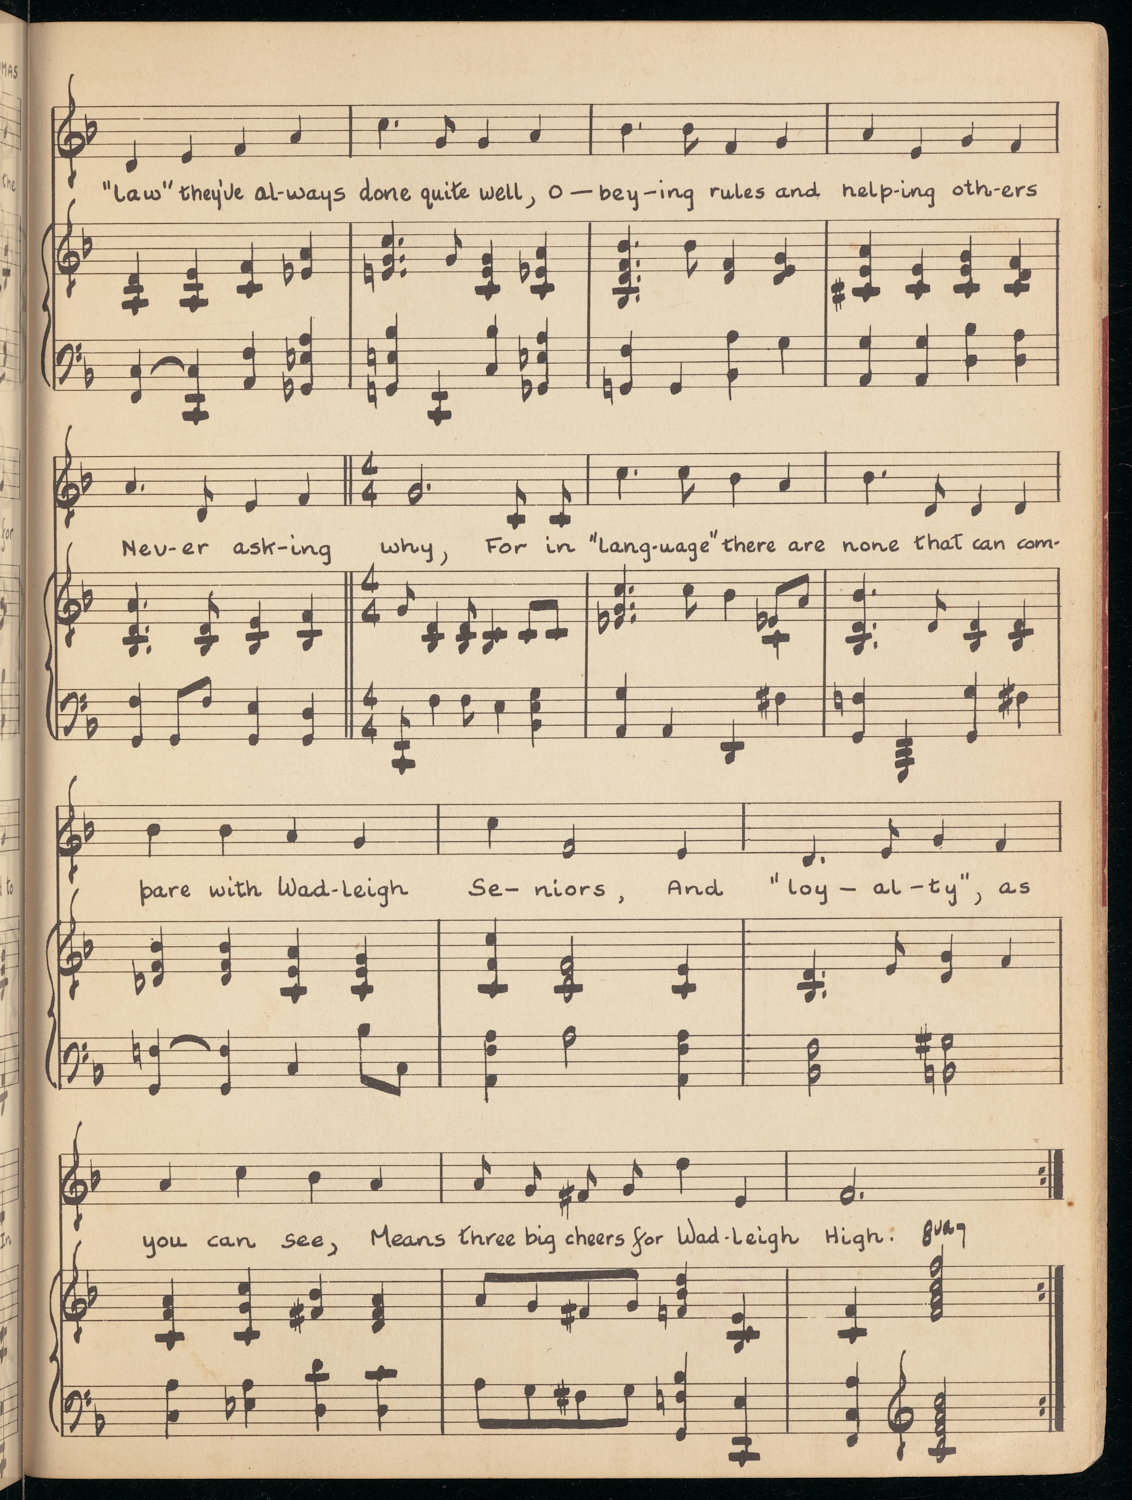 "law" they've al-ways done quite well, O — bey-ing rules and help-ing oth-ers
Nev-er ask-ing why, For in "lang-uage" there are none that can com-
pare with Wad-leigh Se- niors, And "loy - al - ty", as
you can see, Means three big cheers for Wad-leigh High. 8va